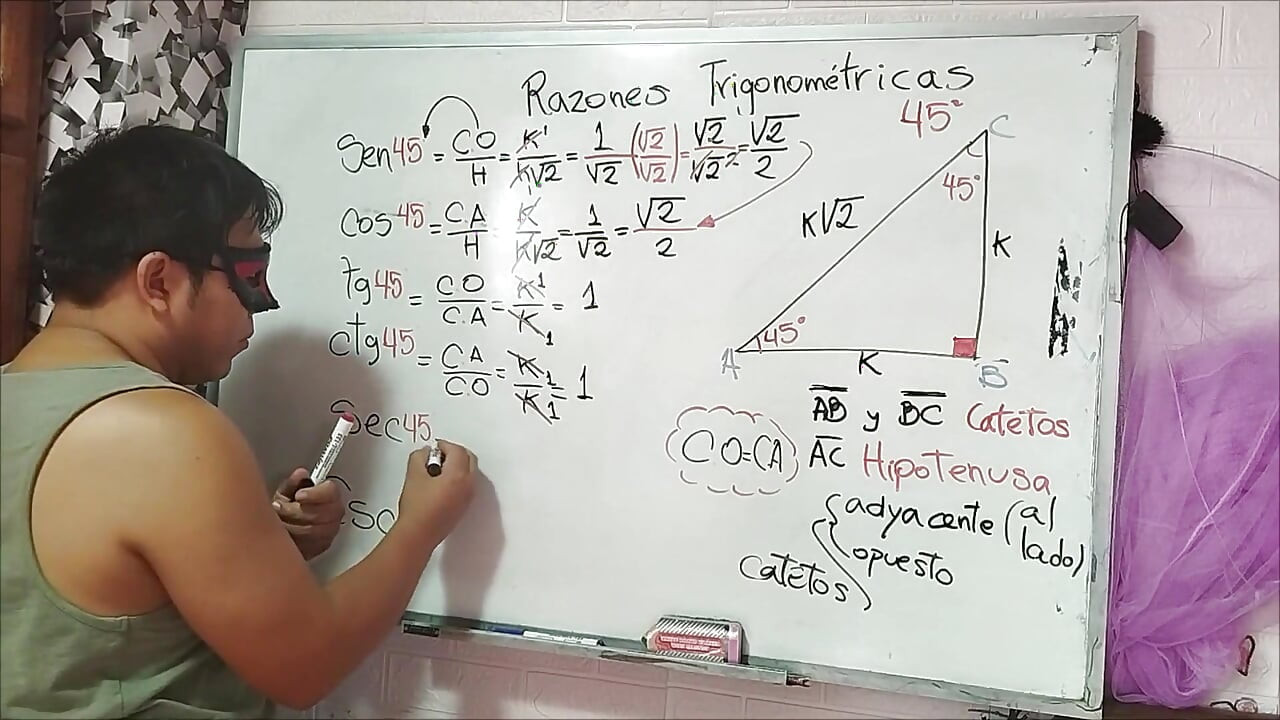 Razones Trigonométricas
Sen45 = CO/H = K/K√2 = 1/√2 (√2/√2) = √2/√2² = √2/2
Cos45 = C.A/H = K/K√2 = 1/√2 = √2/2
tg45 = CO/C.A = K/K = 1
ctg45 = C.A/CO = K/K = 1
Sec45
csc
45°
C
45°
K√2
K
45°
A
K
B
AB y BC Catetos
CO=CA
AC Hipotenusa
adyacente (al lado)
catetos
opuesto